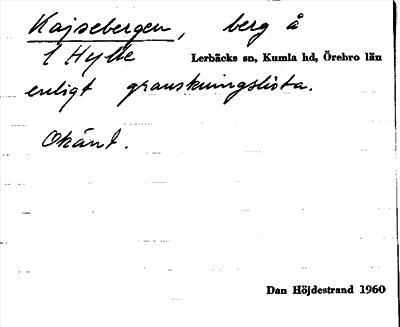 Kajsebergen, berg å
1 Hytte Lerbäcks sn, Kumla hd, Örebro län
enligt granskningslista.
Okänt.
Dan Höjdestrand 1960